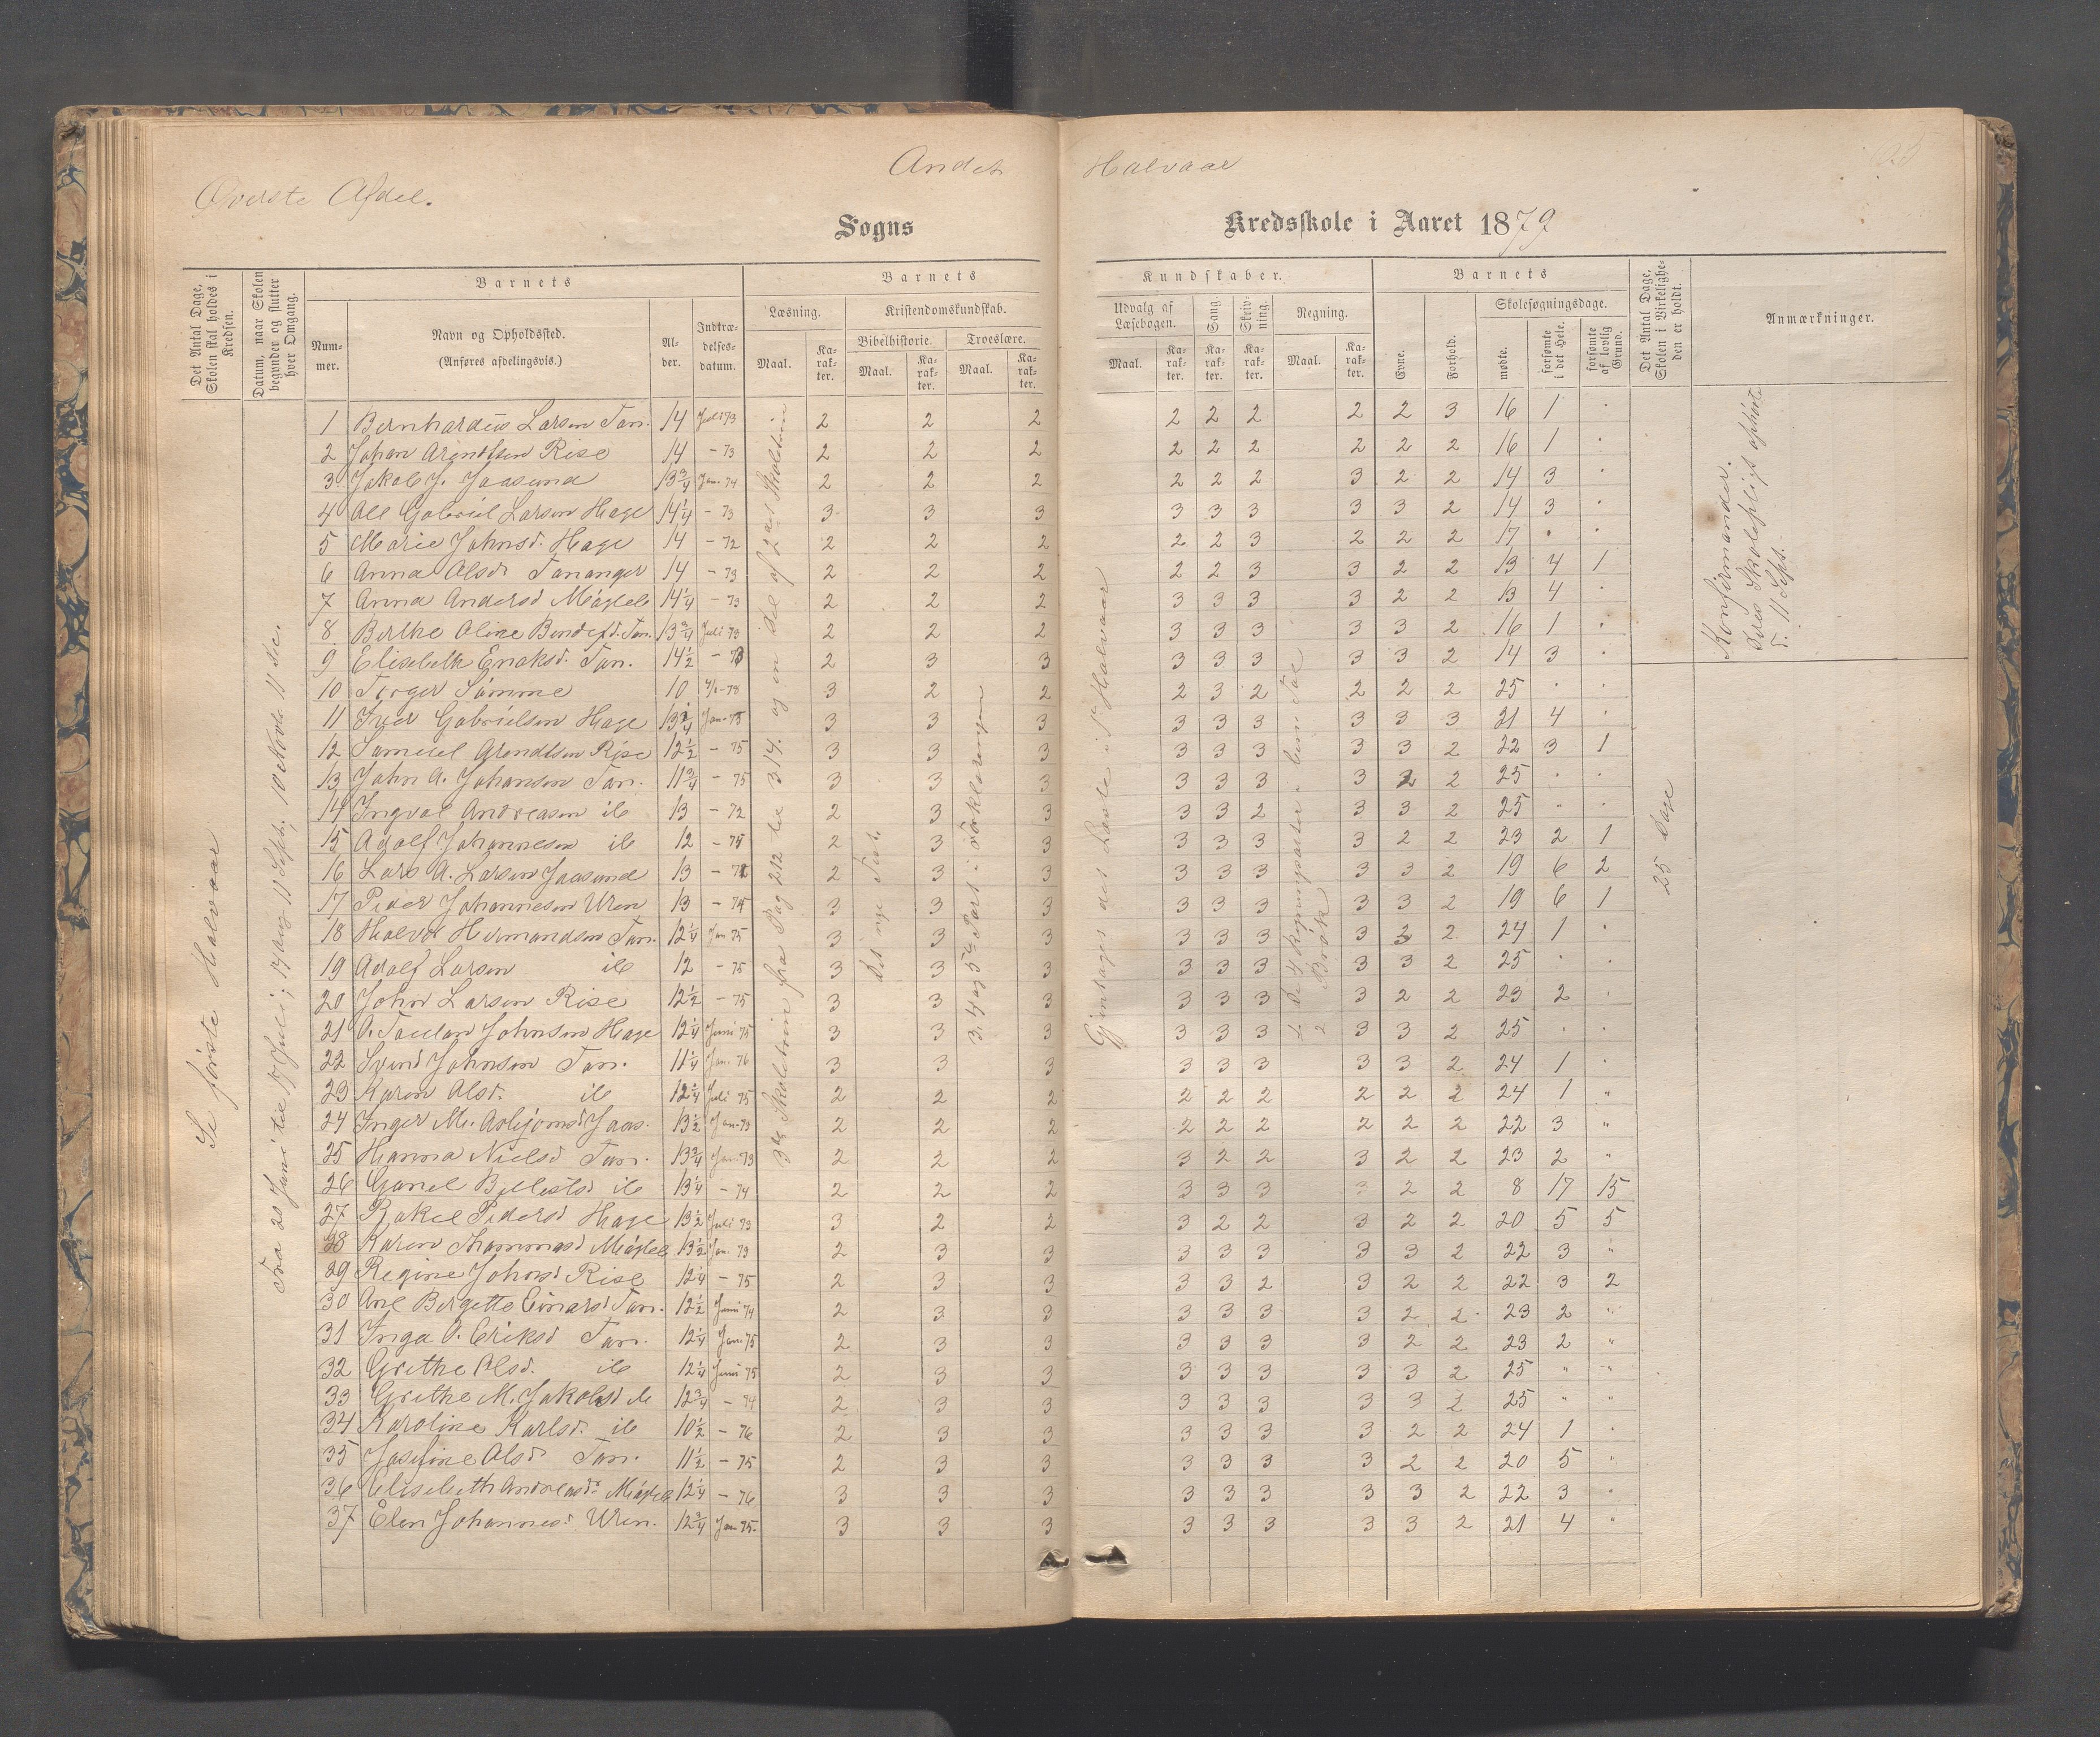 Andet Halvaar
Øverste Afdel.
Sogns Kredsskole i Aaret 1879
Det Antal Dage, Skolen skal holdes i Kredsen.
Datum, naar Skolen begynder og slutter hver Omgang.
Barnets
Nummer.
Navn og Opholdssted.
(Anføres afdelingsvis.)
Alder.
Indtrædelsesdatum.
Barnets
Læsning.
Maal.
Karakter.
Kristendomskundskab.
Bibelhistorie.
Maal.
Karakter.
Troeslære.
Maal.
Karakter.
Kundskaber.
Udvalg af Læsebogen.
Maal.
Karakter.
Sang.
Karakter.
Skrivning.
Karakter.
Regning.
Maal.
Karakter.
Barnets
Evne.
Forhold.
Skolesøgningsdage.
mødte.
forsømte i det Hele.
forsømte af lovlig Grund.
Det Antal Dage, Skolen i Virkeligheden er holdt.
Anmærkninger.
Se første Halvaar
Fra 20 Juni til 17 Juli; 17 Aug 11 Sept. 10 Novb. 11 Dec.
3die Skoletrin fra Pag 212 til 314. og en Del af 2det Skoletrin
Det nye Test.
3. 4 og 5te Part i Forklaringen
Gjentages det Læste i 1ste Halvaar
1. De 4 Regningsarter i hele Tal
2 Brøk
25 Dage
Konfirmander.
Deres Skolepligt ophørte
d. 11 Sept.
1 Bernhardus Larsen Tan. 14 Juli 73 2 2 2 2 2 2 2 2 3 16 1 .
2 Johan Arendtsen Rise 14 - 73 2 2 2 2 2 2 2 2 2 16 1 .
3 Jakob J. Jaasund 13 3/4 Jan. 74 2 2 2 2 2 2 3 2 2 14 3 .
4 Ole Gabriel Larsen Hage 14 1/4 - 73 3 3 3 3 3 3 3 3 2 14 3 .
5 Marie Johnsd. Hage 14 - 72 2 2 2 2 2 3 2 2 2 17 . .
6 Anna Olsd. Tananger 14 - 73 2 2 2 2 2 3 3 2 2 13 4 1
7 Anna Andersd Megleb 14 1/4 - 73 2 2 2 3 3 3 3 2 2 13 4 .
8 Berthe Oline Bendixd. Tan. 13 3/4 Juli 73 2 2 2 3 3 3 3 3 2 16 1 .
9 Elisebeth Enoksd. Tan. 14 1/2 - 73 2 3 3 3 3 3 3 3 2 14 3 .
10 Torger Sømme 10 - 78 3 2 2 2 3 2 2 2 2 25 . .
11 Iver Gabrielsen Hage 13 1/4 Jan. 75 3 3 3 3 3 3 3 3 3 21 4 .
12 Samuel Arendtsen Rise 12 1/2 - 75 3 3 3 3 3 3 3 3 2 22 3 1
13 John A. Johansen Tan. 11 3/4 - 75 3 3 3 3 3 3 3 2 2 25 . .
14 Ingval Andreasen ib 13 - 72 2 3 3 3 3 2 3 3 2 25 . .
15 Adolf Johannesen ib 12 - 75 2 3 3 3 3 3 3 2 2 23 2 1
16 Lars A. Larsen Jaasund 13 - 2 3 3 3 3 3 3 3 2 19 6 2
17 Peder Johannesen Uren 13 - 74 3 3 3 3 3 3 3 3 2 19 6 1
18 Halvor Hermandsen Tan. 12 1/4 Jan 75 3 3 3 3 3 3 3 3 2 24 1 .
19 Adolf Larsen ib 12 - 75 3 3 3 3 3 3 3 3 2 25 . .
20 John Larsen Rise 12 1/2 - 75 3 3 3 3 3 3 3 2 2 23 2 .
21 Johnsen Hage 12 1/4 Juni 75 3 3 3 3 3 3 3 3 2 25 . .
22 Svend Johnsen Tan. 11 1/4 Jan. 76 3 3 3 3 3 3 3 3 2 24 1 .
23 Karen Olsd. ib 12 1/4 Juli 75 2 2 2 2 2 2 2 2 2 24 1 "
24 Inger M. Asbjørnsd Jaas. 13 1/2 Jan. 73 2 2 2 2 2 2 2 2 2 22 3 "
25 Hanna Nielsd Tan. 13 3/4 Jan. 73 2 2 2 3 2 2 3 2 2 23 2 "
26 ib 13 1/4 - 74 2 2 2 3 3 3 3 2 2 8 17 15
27 Rakel Pedersd Hage 13 1/2 Juli 73 3 2 2 3 2 2 3 2 2 20 5 5
28 Karen Thommasd Megleb 13 1/2 Jan. 73 2 3 3 3 3 3 3 3 2 22 3 "
29 Regine Johnsd Rise 12 1/4 - 75 2 3 3 3 3 2 3 2 2 22 3 2
30 Ane Bergette Einarsd Tan. 12 1/2 Juni 74 2 3 3 3 3 3 3 2 2 23 2 "
31 Inga O. Eriksd Tan. 12 1/4 Jan. 75 2 3 3 3 3 3 3 2 2 23 2 "
32 Grethe Olsd. ib 12 1/4 Juni 75 2 3 3 3 3 3 3 3 2 25 " "
33 Grethe M. Jakobsd ib 12 3/4 - 74 2 3 3 3 3 3 3 3 2 25 " "
34 Karoline Karlsd. ib 10 1/2 - 76 2 3 3 3 3 3 3 2 2 24 1 .
35 Josefine Olsd Tan. 11 1/2 - 75 2 3 3 3 3 3 3 2 2 20 5 "
36 Elisebeth Andreasdr Megleb 12 1/4 - 76 3 3 3 3 3 3 3 3 2 22 3 "
37 Elen Johannesd. Uren. 12 3/4 Jan. 75. 3 3 3 3 3 3 3 3 2 21 4 "